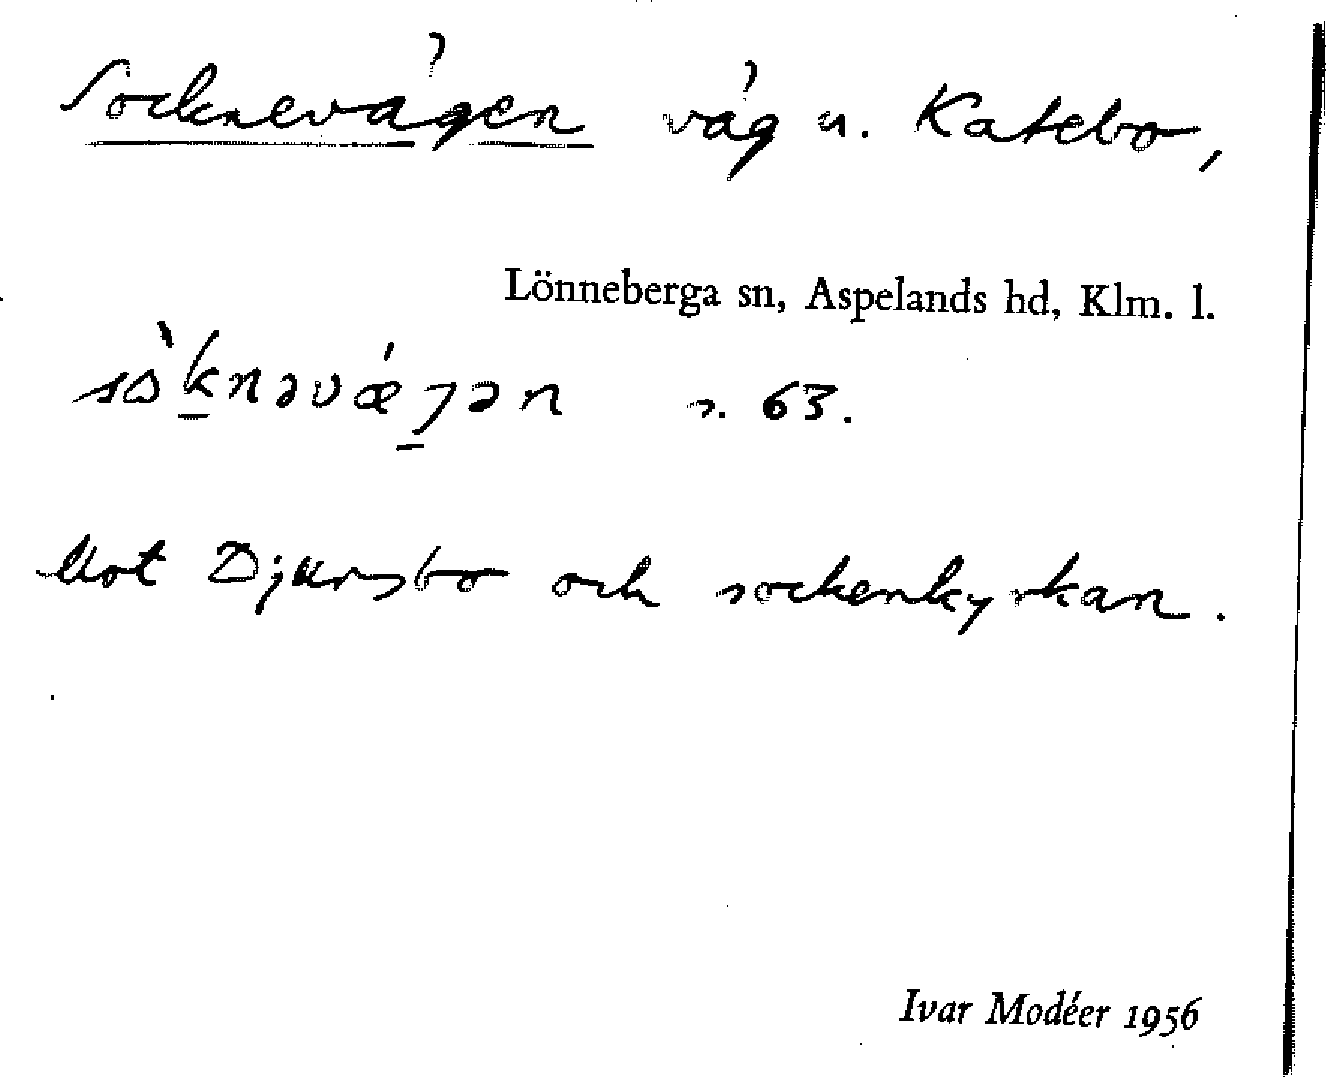 Socknevägen väg u. Katebo,
Lönneberga sn, Aspelands hd, Klm. l.
63.
Mot Djursbo och sockenkyrkan.
Ivar Modéer 1956